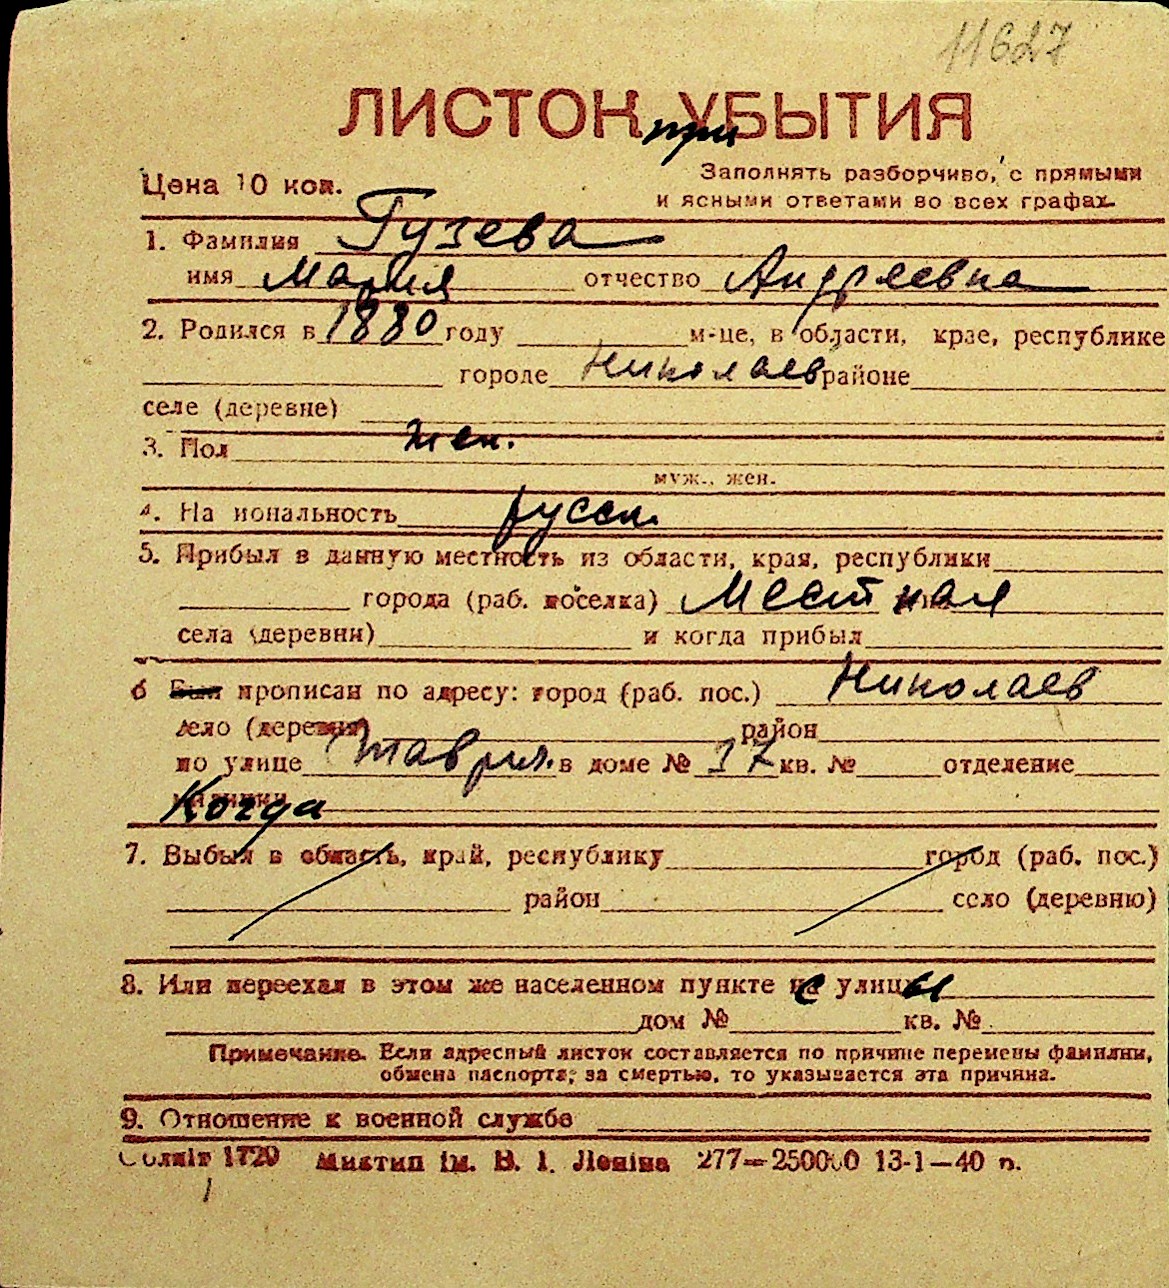 11627
ЛИСТОК УБЫТИЯ
при
Заполнять разборчиво, с прямыми
Цена 10 коп.
и ясными ответами во всех графах.
1. Фамилия Гузева
имя Мария отчество Андреевна
2. Родился в 1880 году м-це, в области, крае, республике
городе Николаев районе
селе (деревне)
3. Пол жен.
муж., жен.
4. На иональность русск.
5. Прибыл в данную местность из области, края, республики
города (раб. поселка) Местная
села (деревни) и когда прибыл
6 Был прописан по адресу: город (раб. пос.) Николаев
село (деревня) район
по улице Таврич. в доме № 17 кв. № отделение
милиции Когда
7. Выбыл в область, край, республику город (раб. пос.)
район село (деревню)
8. Или переехал в этом же населенном пункте с улицы
дом № кв. №
Примечание. Если адресный листок составляется по причине перемены фамилии,
обмена паспорта, за смертью, то указывается эта причина.
9. Отношение к военной службе
Облліт 1720 Миктип ім. В. І. Леніна 277—250000 13-1—40 р.